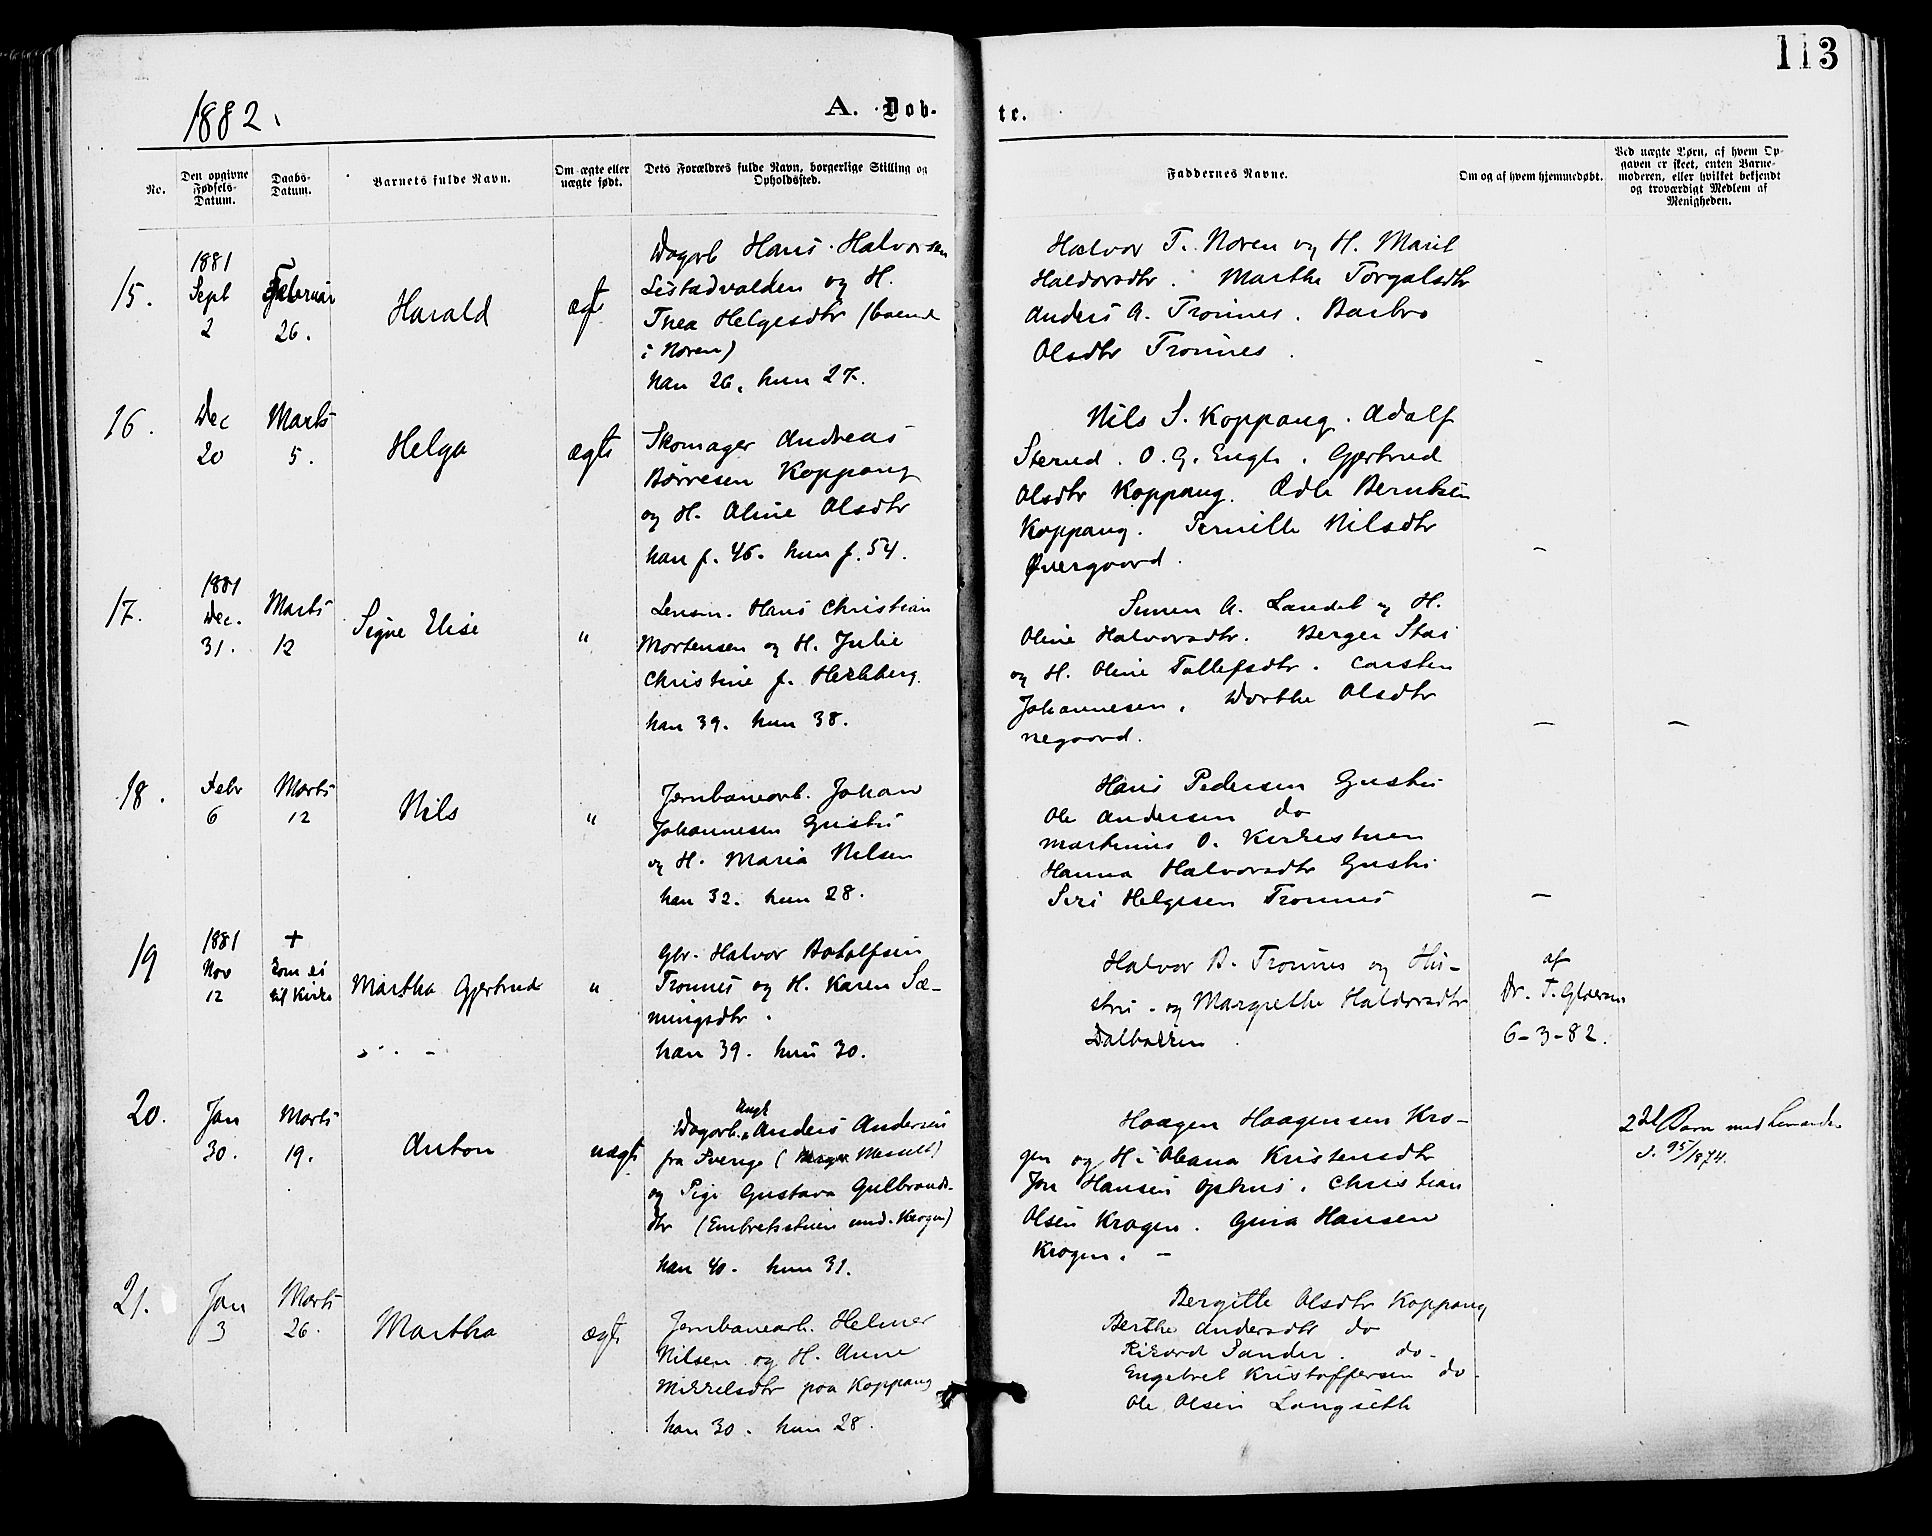 113
1882.
A. Døb-
te.
No.
Den opgivne Fødsels-Datum.
Daabs-Datum.
Barnets fulde Navn.
Om ægte eller uægte født.
Dets Forældres fulde Navn, borgerlige Stilling og Opholdssted.
Faddernes Navne.
Om og af hvem hjemmedøbt.
Ved uægte Børn, af hvem Op-
gaven er skeet, enten Barne-
moderen, eller hvilket bekjendt
og troværdigt Medlem af
Menigheden.
15.
1881
Sept
2
Februar
26.
Harald
ægte
Dagarb Hans Halvorsen
Listadvolden og H.
Thea Helgesdtr (boende
i Noren)
han 26, hun 27.
Halvor T. Noren og H. Marit
Haldorsdtr. Marthe Torgalsdtr
Anders A. Trønnes. Barbro
Olsdtr Trønnes.
16.
Dec
20
Marts
5.
Helga
ægte
Skomager Andreas
Børresen Koppang
og H. Oline Olsdtr
han f. 46. hun f. 54.
Nils S. Koppang. Adolf
Sterud. O. G. Engh. Gjertrud
Olsdtr Koppang. Berntsen
Koppang. Pernille Nilsdtr
Øvergaard.
–
17.
1881
Dec.
31.
Marts
12
Signe Elise
"
Lensm. Hans Christian
Mortensen og H. Julie
Christine f. Hertzberg.
han 39. hun 38.
Simen A. Landet og H.
Oline Halvorsdtr. Berger Stai
og H. Oline Tollefsdtr. Carsten
Johannesen. Dorthe Olsdtr
negaard.
–
–
18.
Febr
6
Marts
12
Nils
"
Jernbanearb. Johan
Johannesen Gustu
og H. Maria Nilsen
han 32. hun 28.
Hans Pedersen Gustu
Ole Andersen do
Martinus O. Kirkestuen
Hanna Halvorsdtr Gustu
Siri Helgesen Trønnes
–
19
1881
Nov
12
+
kom ei
til Kirke
Martha Gjertrud
"
Gbr. Halvor Botolfsen
Trønnes og H. Karen Sæ-
mingsdtr.
han 39. hun 30.
Halvor B. Trønnes og Hu-
stru. og Margrethe Haldorsdtr
Dalbakken.
af
Dr. T.
6-3-82.
20.
Jan
30.
Marts
19.
Anton
uægte
Ungk
Dagarb. Anders Andersen
fra Sverige (Messelt)
og Pige Gustava Gulbrands-
dtr (Embretsstuen und. Krogen)
han 40. hun 31.
Haagen Haagensen Kro-
gen og H. Oleana Kristensdtr
Jon Hansen Ophus. Christian
Olsen Krogen. Gina Hansen
Krogen. –
2det Barn med hverandre
s. 95/1874.
21.
Jan
3
Marts
26.
Martha
ægte
Jernbanearb. Helmer
Nilsen og H. Anne
Mikkelsdtr paa Koppang
han 30. hun 28.
Bergitte Olsdtr Koppang
Berthe Andersdtr do
Rikard Sander. do.
Engebret Kristoffersen do.
Ole Olsen Langseth